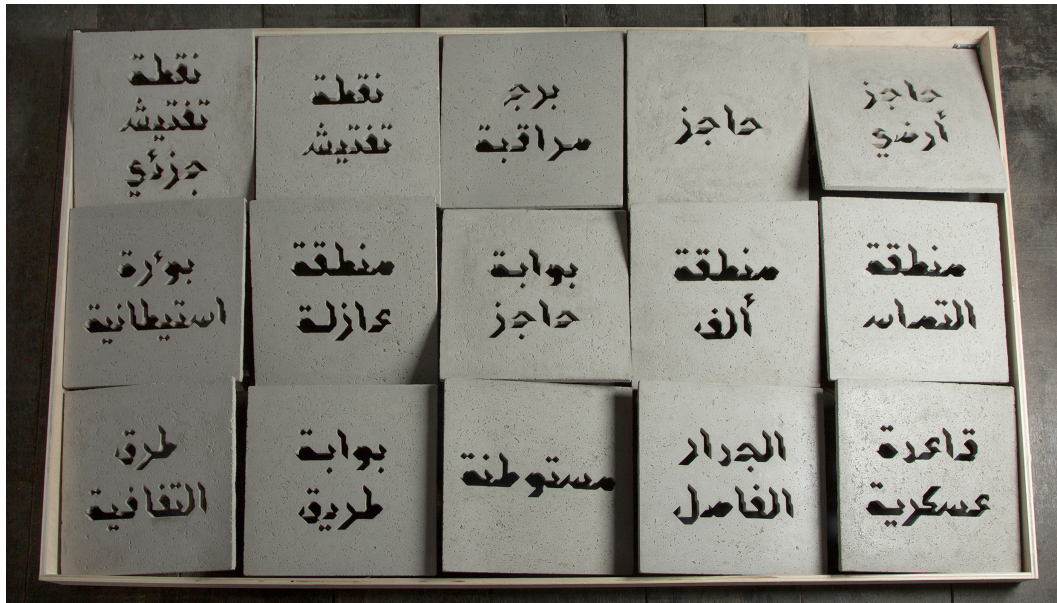 حاجز
أرضي
حاجز
برج
مراقبة
نقطة
تفتيش
نقطة
تفتيش
جزئي
منطقة
التماس
منطقة
ألف
بوابة
حاجز
منطقة
عازلة
بؤرة
استيطانية
قاعدة
عسكرية
الجدار
الفاصل
مستوطنة
بوابة
طريق
طرق
التفافية